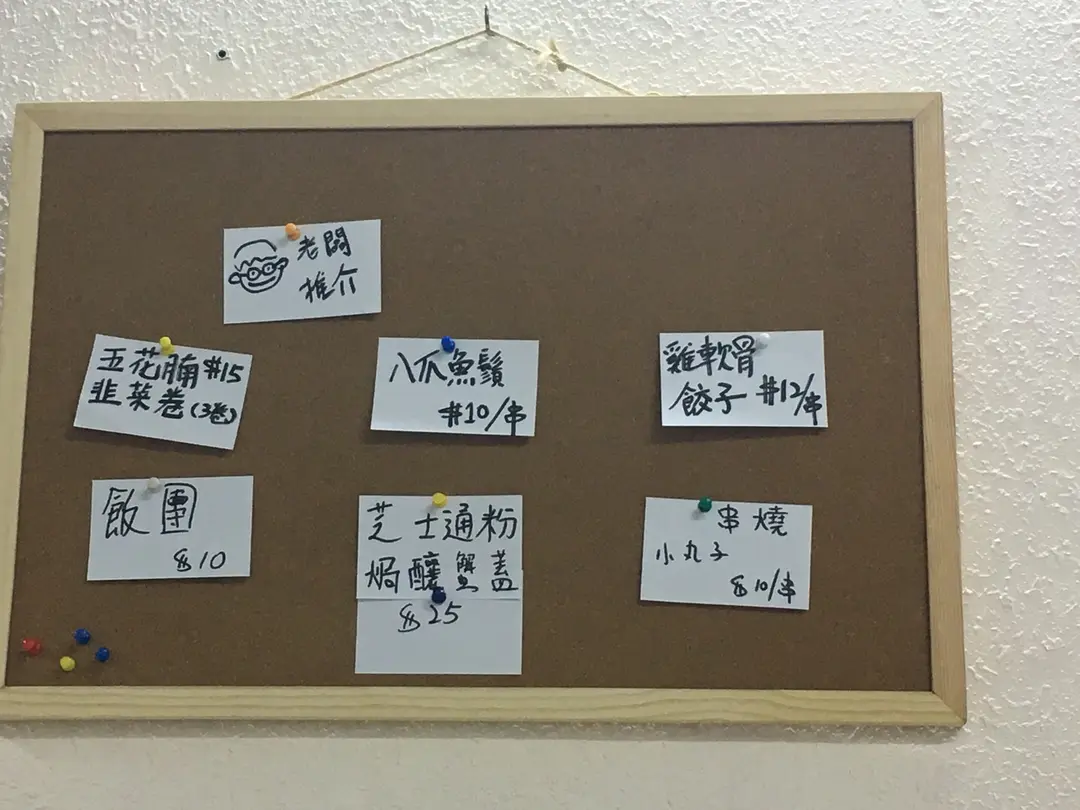 老闆
推介
五花腩 $15
韭菜卷(3卷)
八爪魚鬚
$10/串
雞軟骨
餃子 $12/串
飯團
$10
芝士通粉
焗釀蟹蓋
$25
串燒
小丸子
$10/串